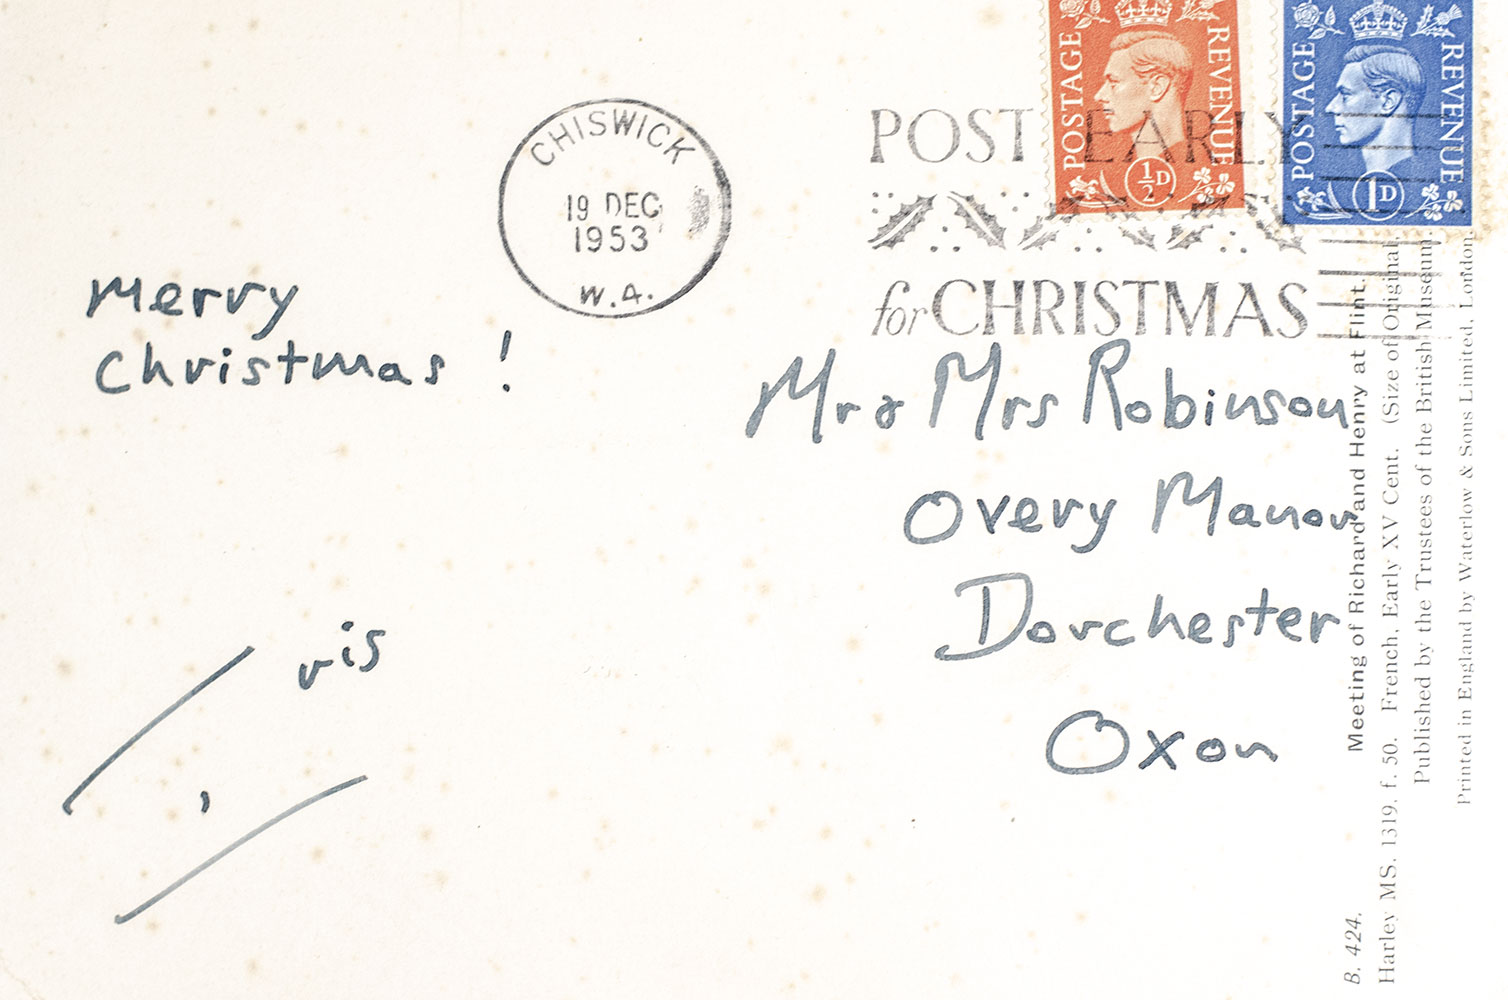 POSTAGE REVENUE
½D
POSTAGE REVENUE
1D
CHISWICK
19 DEC
1953
W.4.
POST EARLY
for CHRISTMAS
Merry
Christmas !
ris
Mr & Mrs Robinson
Overy Manor
Dorchester
Oxon
B. 424. Meeting of Richard and Henry at Flint.
Harley MS. 1319, f. 50. French, Early XV Cent. (Size of Original.
Published by the Trustees of the British Museum.
Printed in England by Waterlow & Sons Limited, London.